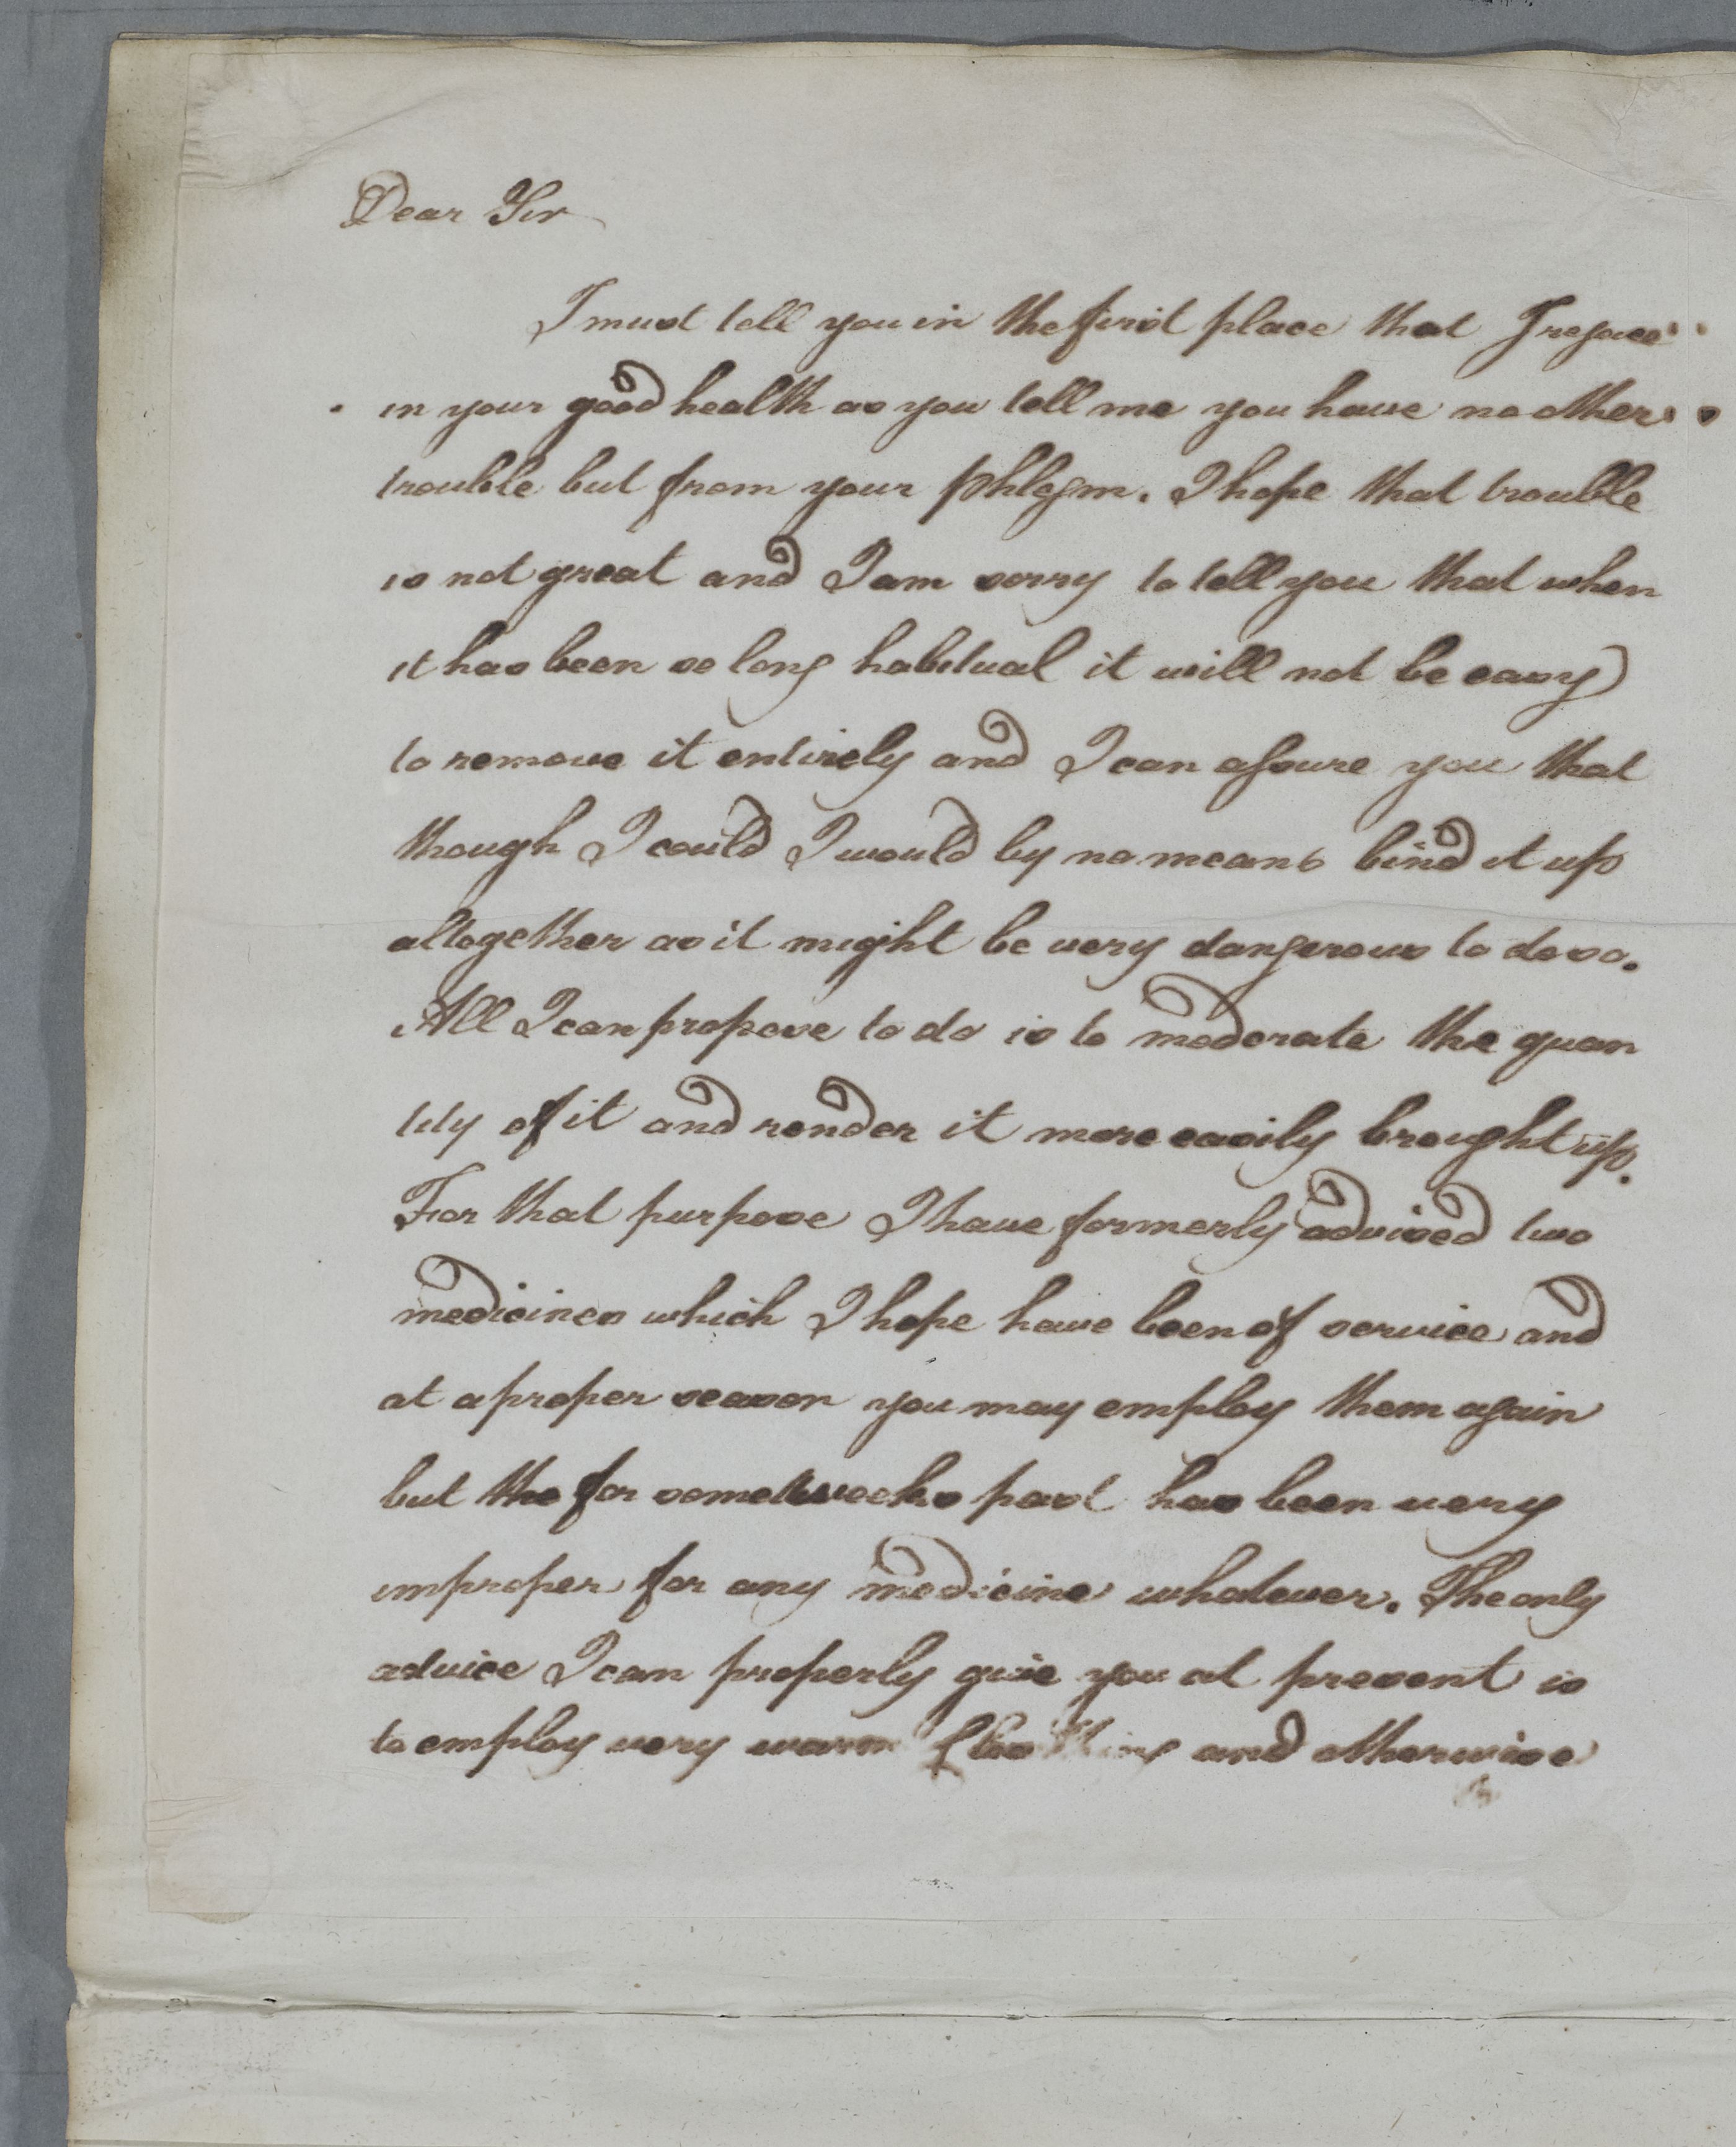 Dear Sir
I must tell you in the first place that I rejoice
in your good health as you tell me you have no other
trouble but from your phlegm. I hope that trouble
is not great and I am sorry to tell you that when
it has been so long habitual it will not be easy
to remove it entirely and I can assure you that
though I could I would by no means bind it up
altogether as it might be very dangerous to do so.
All I can propose to do is to moderate the quan
tity of it and render it more easily brought up.
For that purpose I have formerly advised two
medicines which I hope have been of service and
at a proper season you may employ them again
but the for some weeks past has been very
improper for any medicine whatever. The only
advice I can properly give you at present is
to employ very warm and otherwise